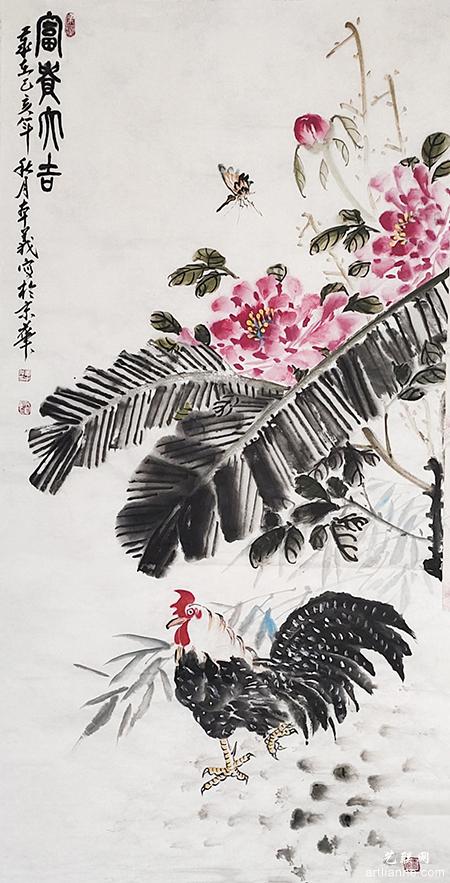 富贵大吉
岁在己亥年秋月卓義写於京華
艺联网
artlianhe.com